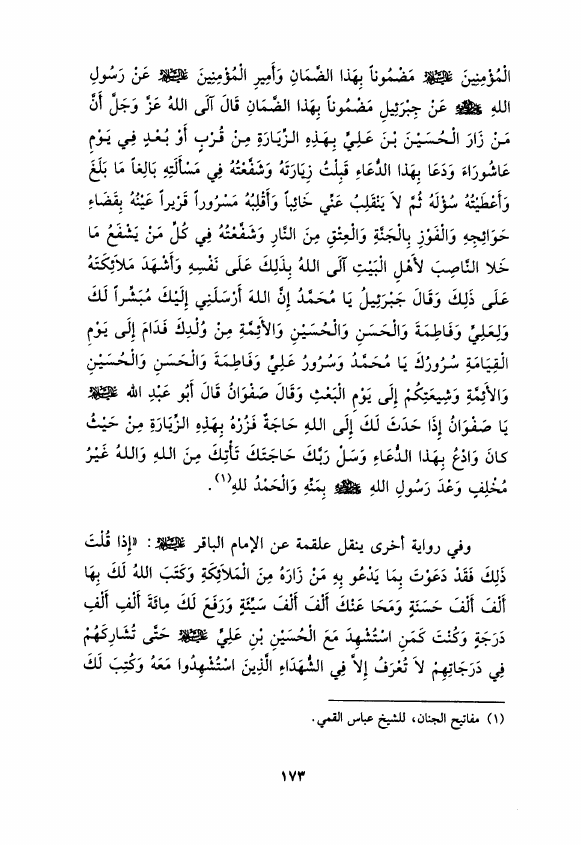 الْمُؤْمِنِينَ عليه السلام مَضْمُوناً بِهَذا الضَّمَانِ وَأَمِيرِ الْمُؤْمِنِينَ عليه السلام عَنْ رَسُولِ
اللهِ ﷺ عَنْ جِبْرَئِيلِ مَضْمُوناً بِهَذا الضَّمَانِ قَالَ آلَى اللهُ عَزَّ وَجَلَّ أَنَّ
مَنْ زَارَ الْحُسَيْنَ بْنَ عَلِيٍّ بِهَذِهِ الزِّيَارَةِ مِنْ قُرْبٍ أَوْ بُعْدٍ فِي يَوْمِ
عَاشُورَاءَ وَدَعَا بِهَذا الدُّعَاءِ قَبِلْتُ زِيَارَتَهُ وَشَفَّعْتُهُ فِي مَسْأَلَتِهِ بَالِغاً مَا بَلَغَ
وَأَعْطَيْتُهُ سُؤْلَهُ ثُمَّ لاَ يَنْقَلِبُ عَنِّي خَائِباً وَأَقْلِبُهُ مَسْرُوراً قَرِيراً عَيْنُهُ بِقَضَاءِ
حَوَائِجِهِ وَالْفَوْزِ بِالْجَنَّةِ وَالْعِتْقِ مِنَ النَّارِ وَشَفَّعْتُهُ فِي كُلِّ مَنْ يَشْفَعُ مَا
خَلا النَّاصِبَ لأَهْلِ الْبَيْتِ آلَى اللهُ بِذَلِكَ عَلَى نَفْسِهِ وَأَشْهَدَ مَلاَئِكَتَهُ
عَلَى ذَلِكَ وَقَالَ جَبْرَئِيلُ يَا مُحَمَّدُ إِنَّ اللهَ أَرْسَلَنِي إِلَيْكَ مُبَشِّراً لَكَ
وَلِعَلِيٍّ وَفَاطِمَةَ وَالْحَسَنِ وَالْحُسَيْنِ وَالأَئِمَّةِ مِنْ وُلْدِكَ فَدَامَ إِلَى يَوْمِ
الْقِيَامَةِ سُرُورُكَ يَا مُحَمَّدُ وَسُرُورُ عَلِيٍّ وَفَاطِمَةَ وَالْحَسَنِ وَالْحُسَيْنِ
وَالأَئِمَّةِ وَشِيعَتِكُمْ إِلَى يَوْمِ الْبَعْثِ وَقَالَ صَفْوَانُ قَالَ أَبُو عَبْدِ الله عليه السلام
يَا صَفْوَانُ إِذَا حَدَثَ لَكَ إِلَى اللهِ حَاجَةٌ فَزُرْهُ بِهَذِهِ الزِّيَارَةِ مِنْ حَيْثُ
كانَ وَادْعُ بِهَذا الدُّعَاءِ وَسَلْ رَبَّكَ حَاجَتَكَ تَأْتِكَ مِنَ اللهِ وَاللهُ غَيْرُ
مُخْلِفٍ وَعْدَ رَسُولِ اللهِ ﷺ بِمَنِّهِ وَالْحَمْدُ للهِ(١).
وفي رواية أخرى ينقل علقمة عن الإمام الباقر عليه السلام: «إِذا قُلْتَ
ذَلِكَ فَقَدْ دَعَوْتَ بِمَا يَدْعُو بِهِ مَنْ زَارَهُ مِنَ الْمَلاَئِكَةِ وَكَتَبَ اللهُ لَكَ بِهَا
أَلْفَ أَلْفَ حَسَنَةٍ وَمَحَا عَنْكَ أَلْفَ أَلْفَ سَيِّئَةٍ وَرَفَعَ لَكَ مِائَةَ أَلْفِ أَلْفِ
دَرَجَةٍ وَكُنْتَ كَمَنِ اسْتُشْهِدَ مَعَ الْحُسَيْنِ بْنِ عَلِيٍّ عليه السلام حَتَّى تُشَارِكَهُمْ
فِي دَرَجَاتِهِمْ لاَ تُعْرَفُ إِلاَّ فِي الشُّهَدَاءِ الَّذِينَ اسْتُشْهِدُوا مَعَهُ وَكُتِبَ لَكَ
(١) مفاتيح الجنان، للشيخ عباس القمي.
١٧٣